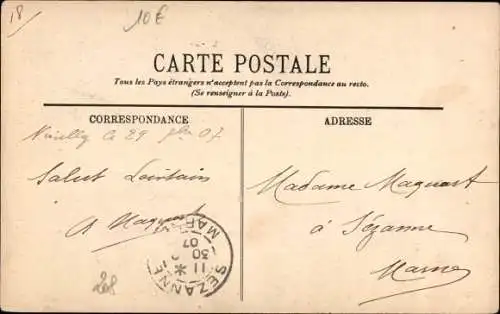 18
10€
CARTE POSTALE
Tous les Pays étrangers n'acceptent pas la Correspondance au recto.
(Se renseigner à la Poste).
CORRESPONDANCE
ADRESSE
Neuilly le 29 9bre 07
Salut Lointain
A Maquart
Madame Maquart
à Sézanne
Marne
SEZANNE
MARNE
11
30
07